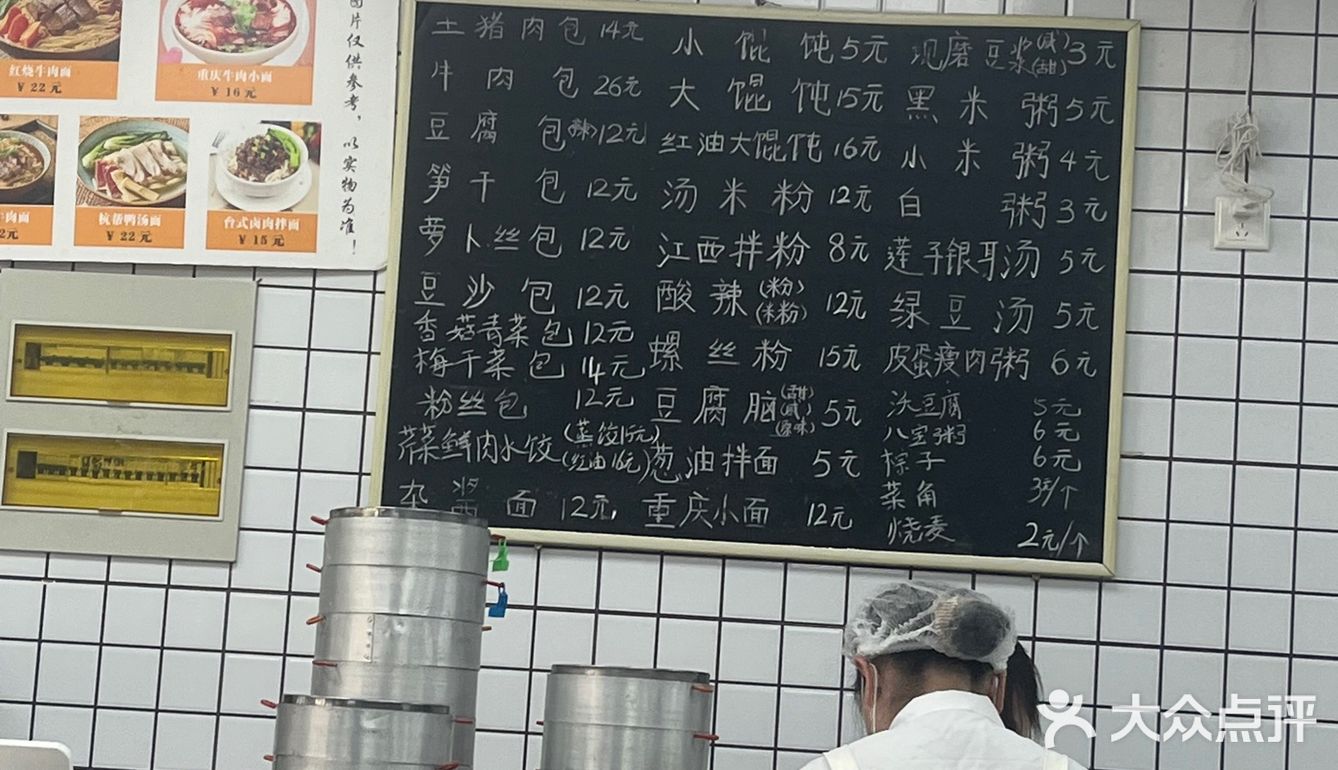 图片仅供参考，以实物为准！
红烧牛肉面
￥22元
重庆牛肉小面
￥16元
牛肉面
2元
杭帮鸭汤面
￥22元
台式卤肉拌面
￥15元
土猪肉包 14元
牛肉包 26元
豆腐包(辣)12元
笋干包 12元
萝卜丝包 12元
豆沙包 12元
香菇青菜包 12元
梅干菜包 14元
粉丝包 12元
荠菜鲜肉水饺 (蒸饺15元) (红油16元)
杂酱面 12元
小馄饨5元
大馄饨15元
红油大馄饨 16元
汤米粉 12元
江西拌粉 8元
酸辣(粉)(米粉) 12元
螺丝粉 15元
豆腐脑(甜)(咸)(原味) 5元
葱油拌面 5元
重庆小面 12元
现磨豆浆(咸)(甜)3元
黑米粥5元
小米粥4元
白粥3元
莲子银耳汤 5元
绿豆汤 5元
皮蛋瘦肉粥 6元
汏豆腐 5元
八宝粥 6元
粽子 6元
菜角 3元/个
烧麦 2元/个
大众点评